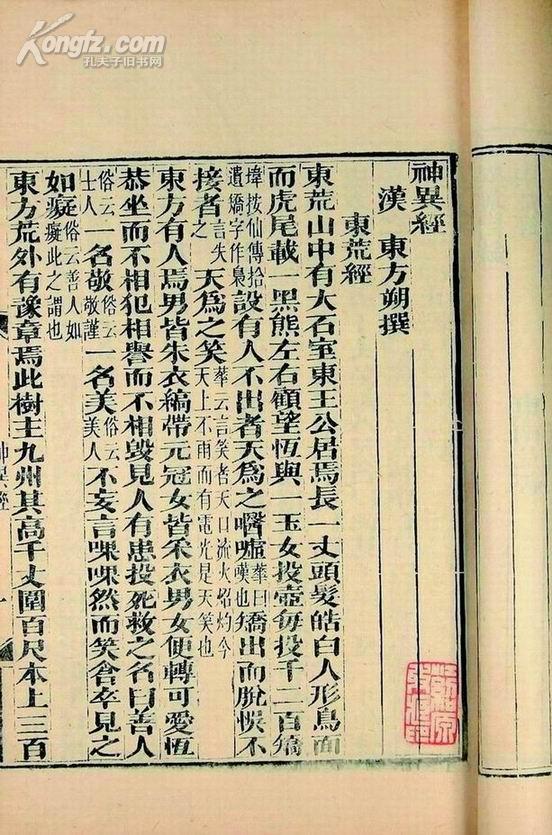 Kongfz.com
孔夫子旧书网
神異經
漢 東方朔撰
東荒經
東荒山中有大石室東王公居焉長一丈頭髮皓白人形鳥面
而虎尾載一黑熊左右顧望恆與一玉女投壺每投千二百矯
暐按仙傳拾遺矯字作梟設有人不出者天為之噓華曰嘆也矯出而脫悮不
接者言失之天為之笑華云言笑者天口流火炤灼今天上不雨而有電光是天笑也
東方有人焉男皆朱衣縞帶元冠女皆采衣男女便轉可愛恆
恭坐而不相犯相譽而不相毀見人有患投死救之名曰善人
俗云士人一名敬俗云敬謹一名美俗云美人不妄言然而笑卒見之
如癡俗云善人如癡此之謂也
東方荒外有豫章焉此樹主九州其高千丈圍百尺本上三百
神異經